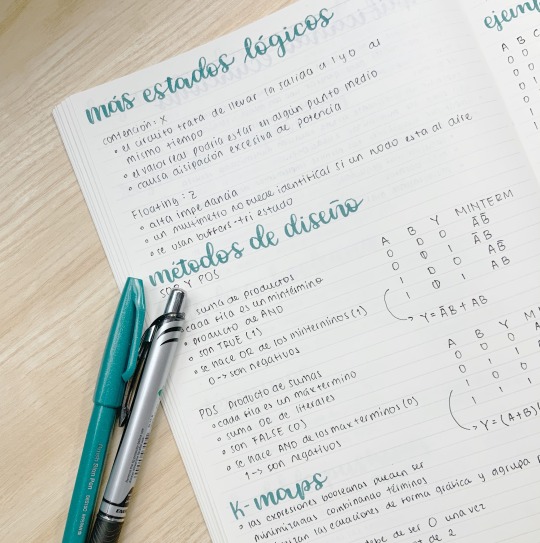 más estados lógicos
contención: X
• el circuito trata de llevar la salida a 1 y 0 al
mismo tiempo
• el valor real podría estar en algún punto medio
• causa disipación excesiva de potencia
Floating: Z
• alta impedancia
• un multímetro no puede identificar si un nodo esta al aire
• se usan buffers-tri estado
métodos de diseño
SOP Y POS
suma de productos
cada fila es un mintérmino
• producto de AND
• son TRUE (1)
• se hace OR de los minterminos (1)
0 -> son negativos
A B Y MINTERM
0 0 0 ĀB̄
0 1 1 ĀB
1 0 0 AB̄
1 1 1 AB
Y = ĀB + AB
POS Producto de sumas
• cada fila es un máxtermino
• suma OR de literales
• son FALSE (0)
• se hace AND de los maxterminos (0)
1 -> son negativos
A B Y
0 0 0
0 1 1
1 0 0
1 1 1
Y = (A+B)
K-maps
• las expresiones booleanas pueden ser
minimizadas combinando términos
las ecuaciones de forma gráfica y agrupa
debe de ser 0 una vez
de 2
A B C
0 0
0 0
0 1
0 1
1
1